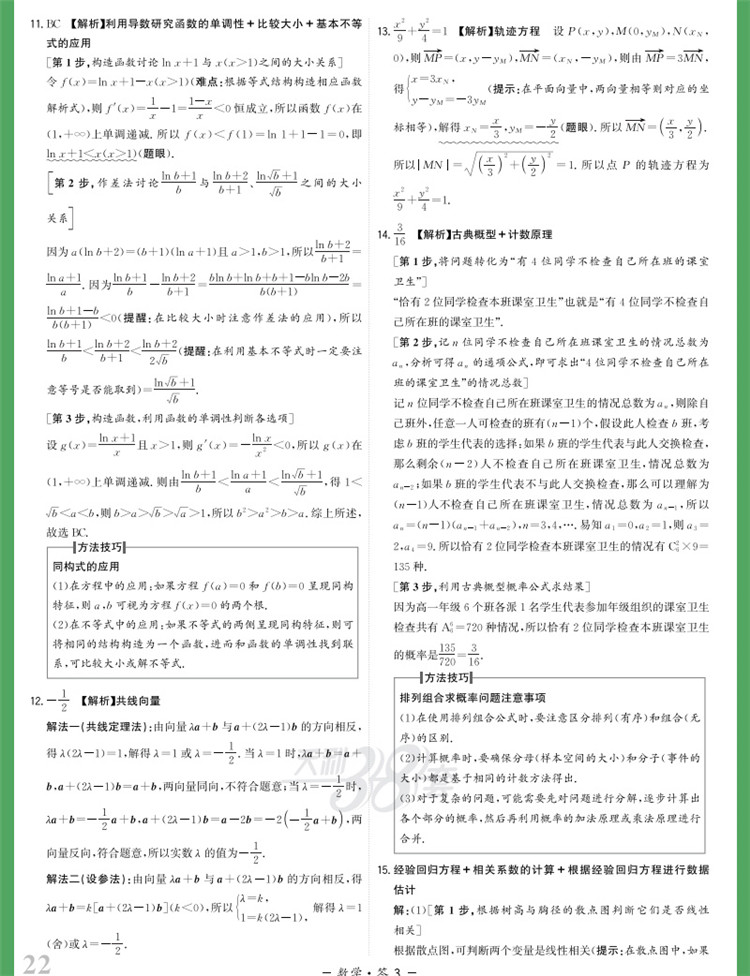 11. BC 【解析】利用导数研究函数的单调性＋比较大小＋基本不等
式的应用
[第 1 步,构造函数讨论 ln x+1 与 x(x>1)之间的大小关系]
令 f(x)=ln x+1-x(x>1)(难点:根据等式结构构造相应函数
解析式),则 f′(x)=1/x-1=(1-x)/x<0 恒成立,所以函数 f(x)在
(1,+∞)上单调递减. 所以 f(x)<f(1)=ln 1+1-1=0,即
ln x+1<x(x>1)(题眼).
[第 2 步,作差法讨论(ln b+1)/b与(ln b+2)/(b+1)、(ln√b+1)/√b之间的大小
关系]
因为 a(ln b+2)=(b+1)(ln a+1)且 a>1,b>1,所以(ln b+2)/(b+1)=
(ln a+1)/a. 因为(ln b+1)/b-(ln b+2)/(b+1)=(bln b+ln b+b+1-bln b-2b)/(b(b+1))=
(ln b+1-b)/(b(b+1))<0(提醒:在比较大小时注意作差法的应用),所以
(ln b+1)/b<(ln b+2)/(b+1)<(ln b+2)/(2√b)(提醒:在利用基本不等式时一定要注
意等号是否能取到)=(ln√b+1)/√b.
[第 3 步,构造函数,利用函数的单调性判断各选项]
设 g(x)=(ln x+1)/x且 x>1,则 g′(x)=-ln x/x²<0,所以 g(x)在
(1,+∞)上单调递减. 则由(ln b+1)/b<(ln a+1)/a<(ln√b+1)/√b,得 1<
√b<a<b,则 b>a>√b>√a>1,所以 b²>a²>b>a. 综上所述,
故选 BC.
方法技巧
同构式的应用
(1)在方程中的应用:如果方程 f(a)=0 和 f(b)=0 呈现同构
特征,则 a,b 可视为方程 f(x)=0 的两个根.
(2)在不等式中的应用:如果不等式的两侧呈现同构特征,则可
将相同的结构构造为一个函数,进而和函数的单调性找到联
系,可比较大小或解不等式.
12. -1/2 【解析】共线向量
解法一(共线定理法):由向量 λa+b 与 a+(2λ-1)b 的方向相反,
得 λ(2λ-1)=1,解得 λ=1 或 λ=-1/2. 当 λ=1 时,λa+b=a+
b,a+(2λ-1)b=a+b,两向量同向,不符合题意;当 λ=-1/2时,
λa+b=-1/2a+b,a+(2λ-1)b=a-2b=-2(-1/2a+b),两
向量反向,符合题意,所以实数 λ 的值为-1/2.
解法二(设参法):由向量 λa+b 与 a+(2λ-1)b 的方向相反,得
λa+b=k[a+(2λ-1)b](k<0),所以{λ=k, 1=k(2λ-1), 解得 λ=1
(舍)或 λ=-1/2.
13. x²/9+y²/4=1 【解析】轨迹方程 设 P(x,y),M(0,y_M),N(x_N,
0),则 MP=(x,y-y_M),MN=(x_N,-y_M),则由 MP=3MN,
得{x=3x_N, y-y_M=-3y_M (提示:在平面向量中,两向量相等则对应的坐
标相等),解得 x_N=x/3,y_M=-y/2(题眼). 所以 MN=(x/3,y/2).
所以|MN|=√((x/3)²+(y/2)²)=1. 所以点 P 的轨迹方程为
x²/9+y²/4=1.
14. 3/16 【解析】古典概型＋计数原理
[第 1 步,将问题转化为“有 4 位同学不检查自己所在班的课室
卫生”]
“恰有 2 位同学检查本班课室卫生”也就是“有 4 位同学不检查自
己所在班的课室卫生”.
[第 2 步,记 n 位同学不检查自己所在班课室卫生的情况总数为
aₙ,分析可得 aₙ 的通项公式,即可求出“4 位同学不检查自己所在
班的课室卫生”的情况总数]
记 n 位同学不检查自己所在班课室卫生的情况总数为 aₙ,则除自
己班外,任意一人可检查的班有(n-1)个,假设此人检查 b 班,考
虑 b 班的学生代表的选择:如果 b 班的学生代表与此人交换检查,
那么剩余(n-2)人不检查自己所在班课室卫生,情况总数为
aₙ₋₂;如果 b 班的学生代表不与此人交换检查,那么可以理解为
(n-1)人不检查自己所在班课室卫生,情况总数为 aₙ₋₁,所以
aₙ=(n-1)(aₙ₋₁+aₙ₋₂),n=3,4,…. 易知 a₁=0,a₂=1,则 a₃=
2,a₄=9. 所以恰有 2 位同学检查本班课室卫生的情况有 C₆²×9=
135 种.
[第 3 步,利用古典概型概率公式求结果]
因为高一年级 6 个班各派 1 名学生代表参加年级组织的课室卫生
检查共有 A₆⁶=720 种情况,所以恰有 2 位同学检查本班课室卫生
的概率是135/720=3/16.
方法技巧
排列组合求概率问题注意事项
(1)在使用排列组合公式时,要注意区分排列(有序)和组合(无
序)的区别.
(2)计算概率时,要确保分母(样本空间的大小)和分子(事件的
大小)都是基于相同的计数方法得出.
(3)对于复杂的问题,可能需要先对问题进行分解,逐步计算出
各个部分的概率,然后再利用概率的加法原理或乘法原理进行
合并.
15. 经验回归方程＋相关系数的计算＋根据经验回归方程进行数据
估计
解:(1)[第 1 步,根据树高与胸径的散点图判断它们是否线性
相关]
根据散点图,可判断两个变量是线性相关(提示:在散点图中,如果
22
— 数学·答 3 —